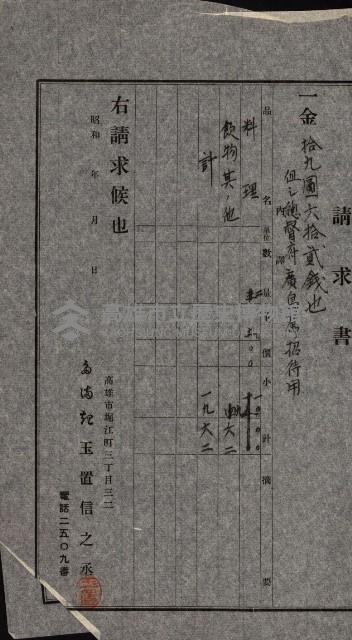 請求書
一金拾九圓六拾貳錢也
但シ總督府廣島屬招待用
內譯
品名 單位 數量 單價 小計 摘要
料理 五〇〇 一〇〇〇
飲物其ノ他 九六二
計 一九六二
右請求候也
昭和 年 月 日
高雄市堀江町三丁目三二
玉置信之丞
電話二五〇九番